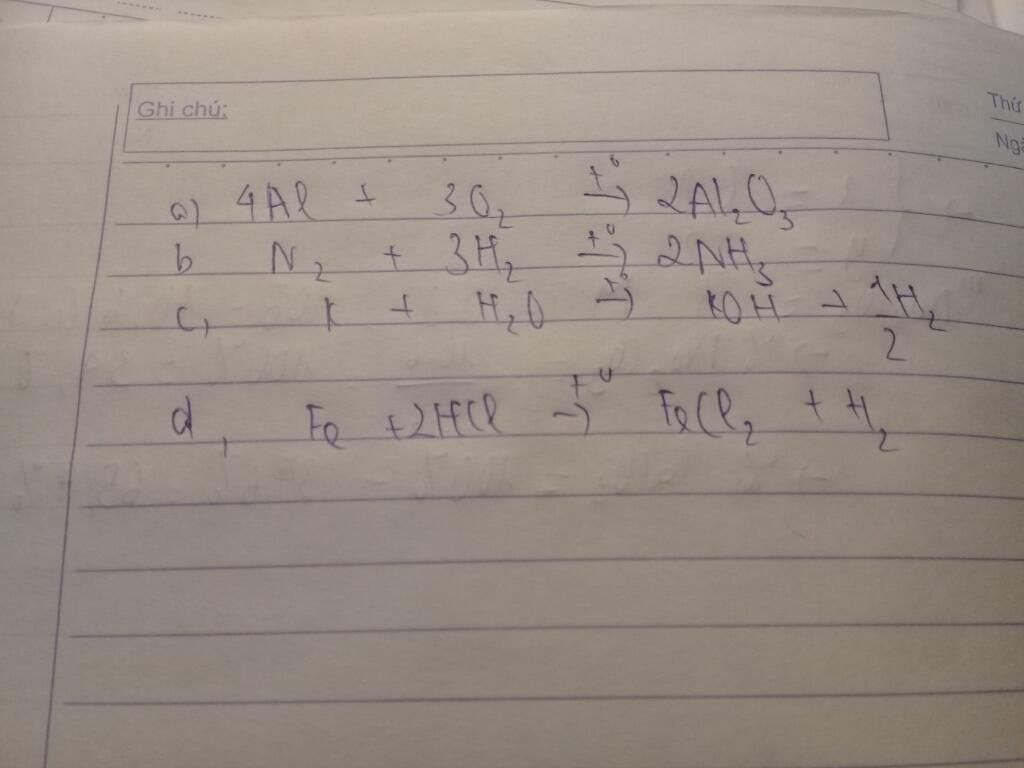 Ghi chú:
Thứ
Ngà
a) 4Al + 3O₂ →(t⁰) 2Al₂O₃
b N₂ + 3H₂ →(t⁰) 2NH₃
c, K + H₂O →(t⁰) KOH + 1/2 H₂
d, Fe + 2HCl →(t⁰) FeCl₂ + H₂